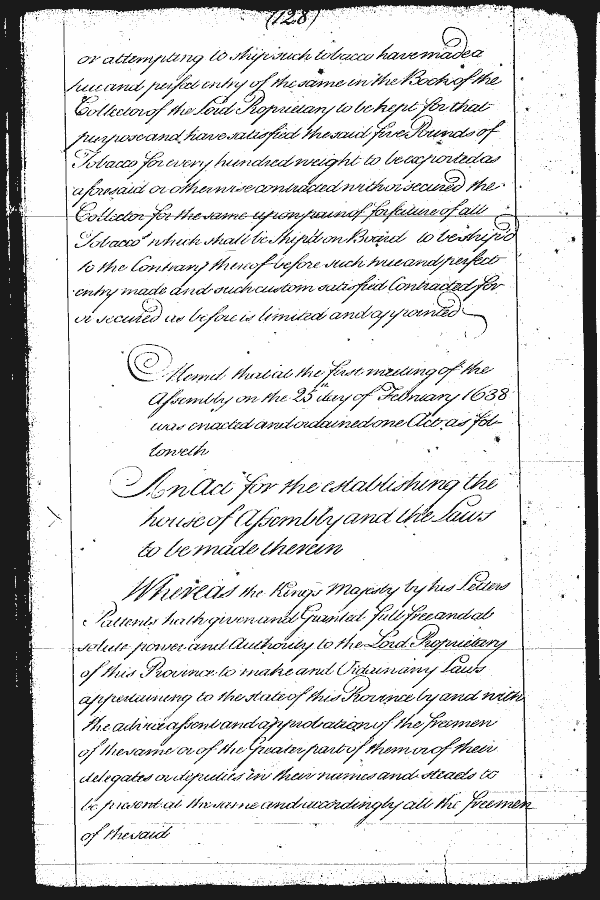 (128)
or attempting to ship such tobacco have made a
true and perfect entry of the same in the Book of the
Collector of the Lord Proprietary to be kept for that
purpose and have satisfied the said five Pounds of
Tobacco for every hundred weight to be exported as
aforesaid or otherwise contracted with or secured the
Collector for the same upon pain of forfeiture of all
Tobacco which shall be ship'd on Board to be ship'd
to the Contrary thereof before such true and perfect
entry made and such custom satisfied Contracted for
or secured as before is limited and appointed
Memd that at the first meeting of the
Assembly on the 25th day of February 1638
was enacted and ordained one Act as fol-
loweth
An Act for the establishing the
house of Assembly and the Laws
to be made therein
Whereas the Kings Majesty by his Letters
Patients hath given and Granted full free and ab
solute power and Authority to the Lord Proprietary
of this Province to make and Ordain any Laws
appertaining to the state of this Province by and with
the advice assent and approbation of the freemen
of the same or of the Greater part of them or of their
delegates or deputies in their names and steads to
be present at the same and accordingly all the freemen
of the said